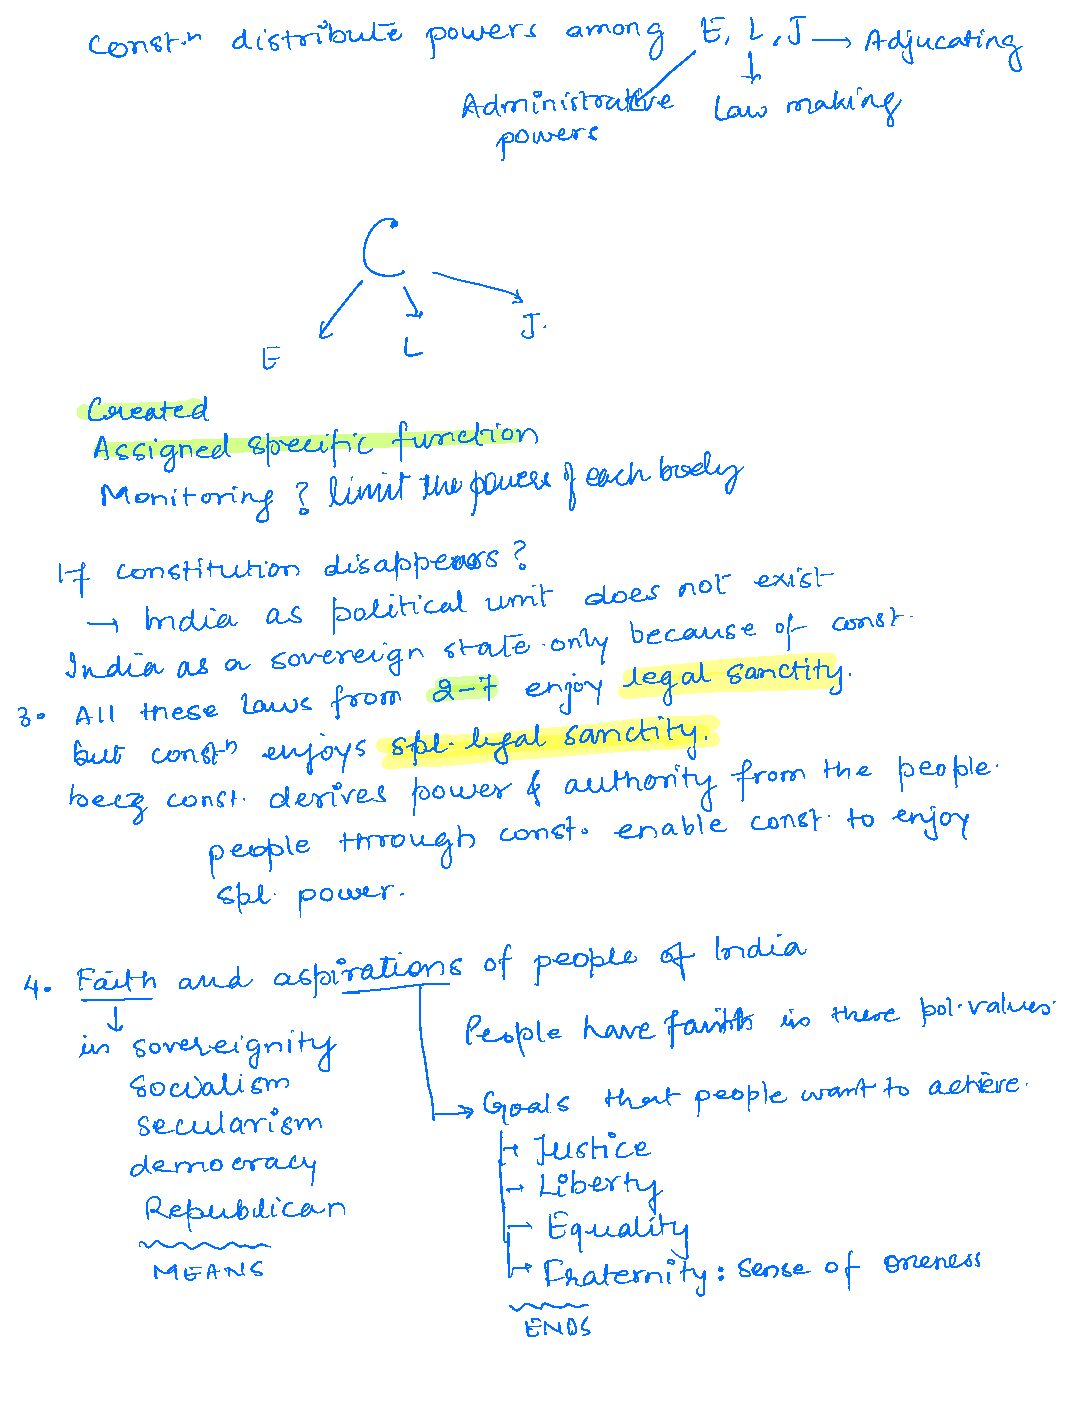 Const.n distribute powers among E, L, J → Adjucating
Administrative powers
Law making
C
E L J.
Created
Assigned specific function
Monitoring ? limit the powers of each body
If constitution disappears ?
→ India as political unit does not exist
India as a sovereign state only because of const.
3. All these laws from 2-7 enjoy legal sanctity.
but constn enjoys spl. legal sanctity.
becz const. derives power & authority from the people.
people through const. enable const. to enjoy
spl. power.
4. Faith and aspirations of people of India
People have faith in these pol. values.
in sovereignity
socialism
secularism
democracy
Republican
MEANS
→ Goals that people want to achieve.
→ Justice
→ Liberty
→ Equality
→ Fraternity : sense of oneness
ENDS